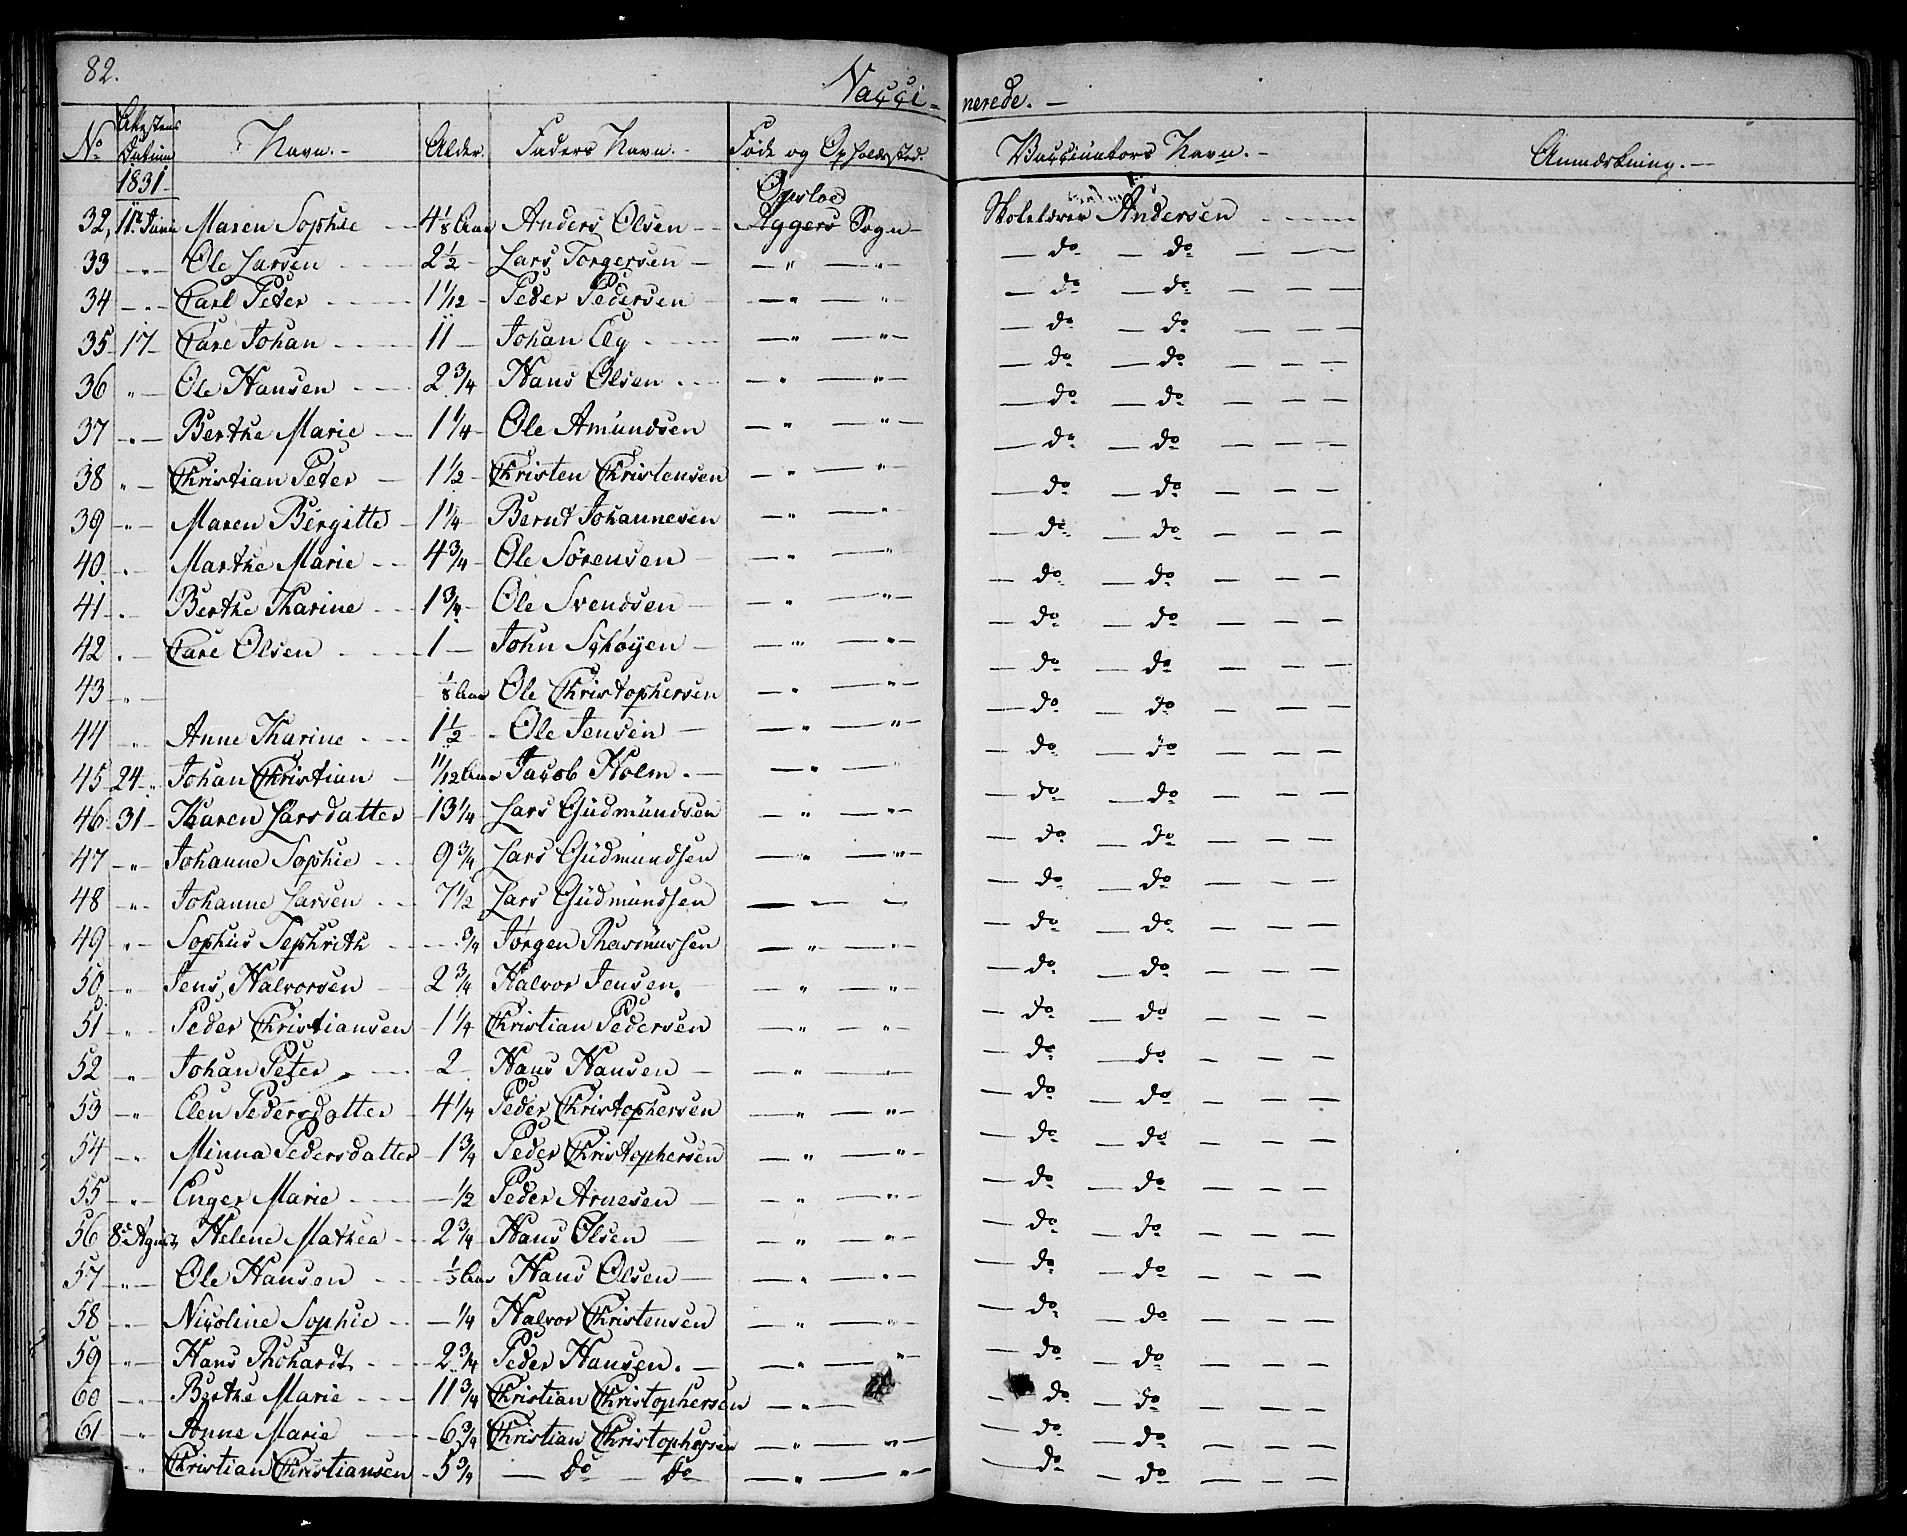 82.
Vacci- nerede. -
No Attestens Datum Navn. - Alder. Faders Navn. - Føde og Opholdssted. Vaccinators Navn. - Anmærkning. -
1831 Opsloe
32, 11 Juni Maren Sophie 4 1/8 Aar Anders Olsen - Aggers Sogn - Skolelærer Andersen
33 - " - Ole Larsen 2 1/2 - Lars Torgersen - " - " - do - do - - -
34 - " - Carl Peter 1 1/12 - Peder Pedersen - " - " - do - do - - -
35 17 - Care Johan 11 - Johan Eeg - " - " - do - do - - -
36 " - Ole Hansen 2 3/4 Hans Olsen - " - " - do - do - - -
37 - " - Berthe Marie 1 1/4 - Ole Amundsen - " - " - do - do - - -
38 " - Christian Peter - 1 1/2 - Christen Christensen - " - " - do - do - - -
39 - " - Maren Birgitte - 1 1/4 - Bernt Johannesen - " - " - do - do - - -
40 - " - Marthe Marie - 4 3/4 - Ole Sørensen - " - " - do - do - - -
41 - " - Berthe Karine 1 3/4 - Ole Svendsen - " - " - do - do - - -
42 " - Care Olsen 1 - John Schøyen - " - " - do - do - - -
43 - " - 1/8 Aar Ole Christophersen - " - " - do - do - - -
44 - " - Anne Karine 1 1/2 - Ole Jensen - " - " - do - do - - -
45 24 - " Johan Christian - 11/12 Aar Jacob Holm. - " - " - do - do - - -
46 31 - Karen Larsdatter - 13 1/4 Lars Gudmundsen - " - " - do - do - - -
47 - " Johanne Sophie 9 3/4 Lars Gudmundsen - " - " - do - do - - -
48 - " - Johanne Larsen 7 1/2 Lars Gudmundsen - - - do - do - - -
49 - " - Sophus Sephrith 3/4 Jørgen Rasmussen - " - " - do - do - - -
50 - " Jens Halvorsen - 2 3/4 Halvor Jensen. - " - " - do - do - - -
51 - " - Peder Christiansen - 1 1/4 Christian Pedersen - " - " - do - do - - -
52 - " - Johan Peter 2 - Hans Hansen - " - " - do - do - - -
53 - " - Elen Pedersdatter - 4 1/4 Peder Christophersen - " - " - do - do - - -
54 - " Minna Pedersdatter - 1 3/4 Peder Christophersen - " - " - do - do - - -
55 - " - Enger Marie - 1/2 Peder Arnesen - " - " - do - do - - -
56 8de August, Helene Mathea 2 3/4 Hans Olsen - " - " - do - do - - -
57 - " - Ole Hansen 1/3 Aar Hans Olsen - " - " - do - do - - -
58 - " - Nicoline Sophie - 1/4 Halvor Christensen - " - " - do - do - - -
59 - " - Hans 2 3/4 Peder Hansen. - " - " - do - do - - -
60 - " - Berthe Marie 11 3/4 Christian Christophersen - " - do - do - - -
61 - " Anne Marie 6 3/4 Christian Christophersen - " - " - do - do - - -
- " Christian Christiansen - 5 3/4 - do - do - " - " - do - do - - -